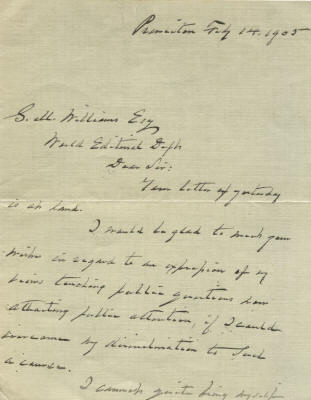 Princeton Feby 14. 1905
G. M. Williams Esq
World Editorial Dept
Dear Sir:
Your letter of yesterday
is at hand.
I would be glad to meet your
wishes in regard to an expression of my
views touching public questions now
attracting public attention, if I could
overcome my disinclination to such
a course.
I cannot quite bring myself